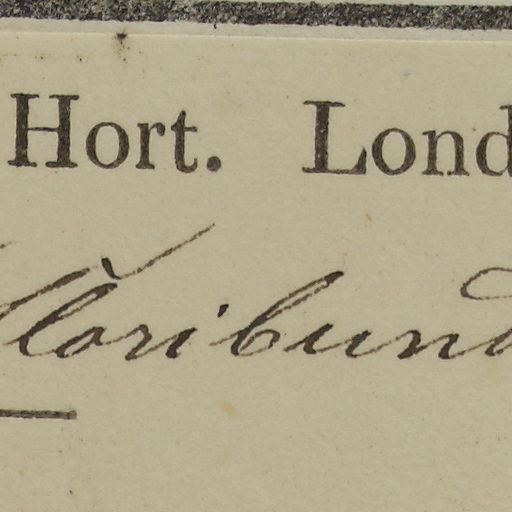 Hort. Lond
floribund